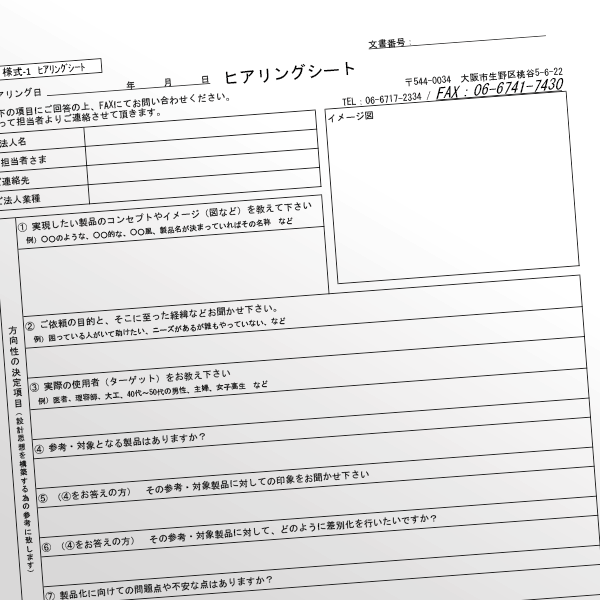 文書番号：
様式-1 ヒアリングシート
アリング日 年 月 日 ヒアリングシート
〒544-0034 大阪市生野区桃谷5-6-22
TEL：06-6717-2334 / FAX：06-6741-7430
下の項目にご回答の上、FAXにてお問い合わせください。
って担当者よりご連絡させて頂きます。
法人名
担当者さま
ご連絡先
ご法人業種
イメージ図
① 実現したい製品のコンセプトやイメージ（図など）を教えて下さい
例）〇〇のような、〇〇的な、〇〇風、製品名が決まっていればその名称 など
② ご依頼の目的と、そこに至った経緯などお聞かせ下さい。
例）困っている人がいて助けたい、ニーズがあるが誰もやっていない、など
③ 実際の使用者（ターゲット）をお教え下さい
例）医者、理容師、大工、40代～50代の男性、主婦、女子高生 など
④ 参考・対象となる製品はありますか？
⑤ （④をお答えの方） その参考・対象製品に対しての印象をお聞かせ下さい
⑥ （④をお答えの方） その参考・対象製品に対して、どのように差別化を行いたいですか？
⑦ 製品化に向けての問題点や不安な点はありますか？
方向性の決定項目（設計思想を構築する為の参考に致します）